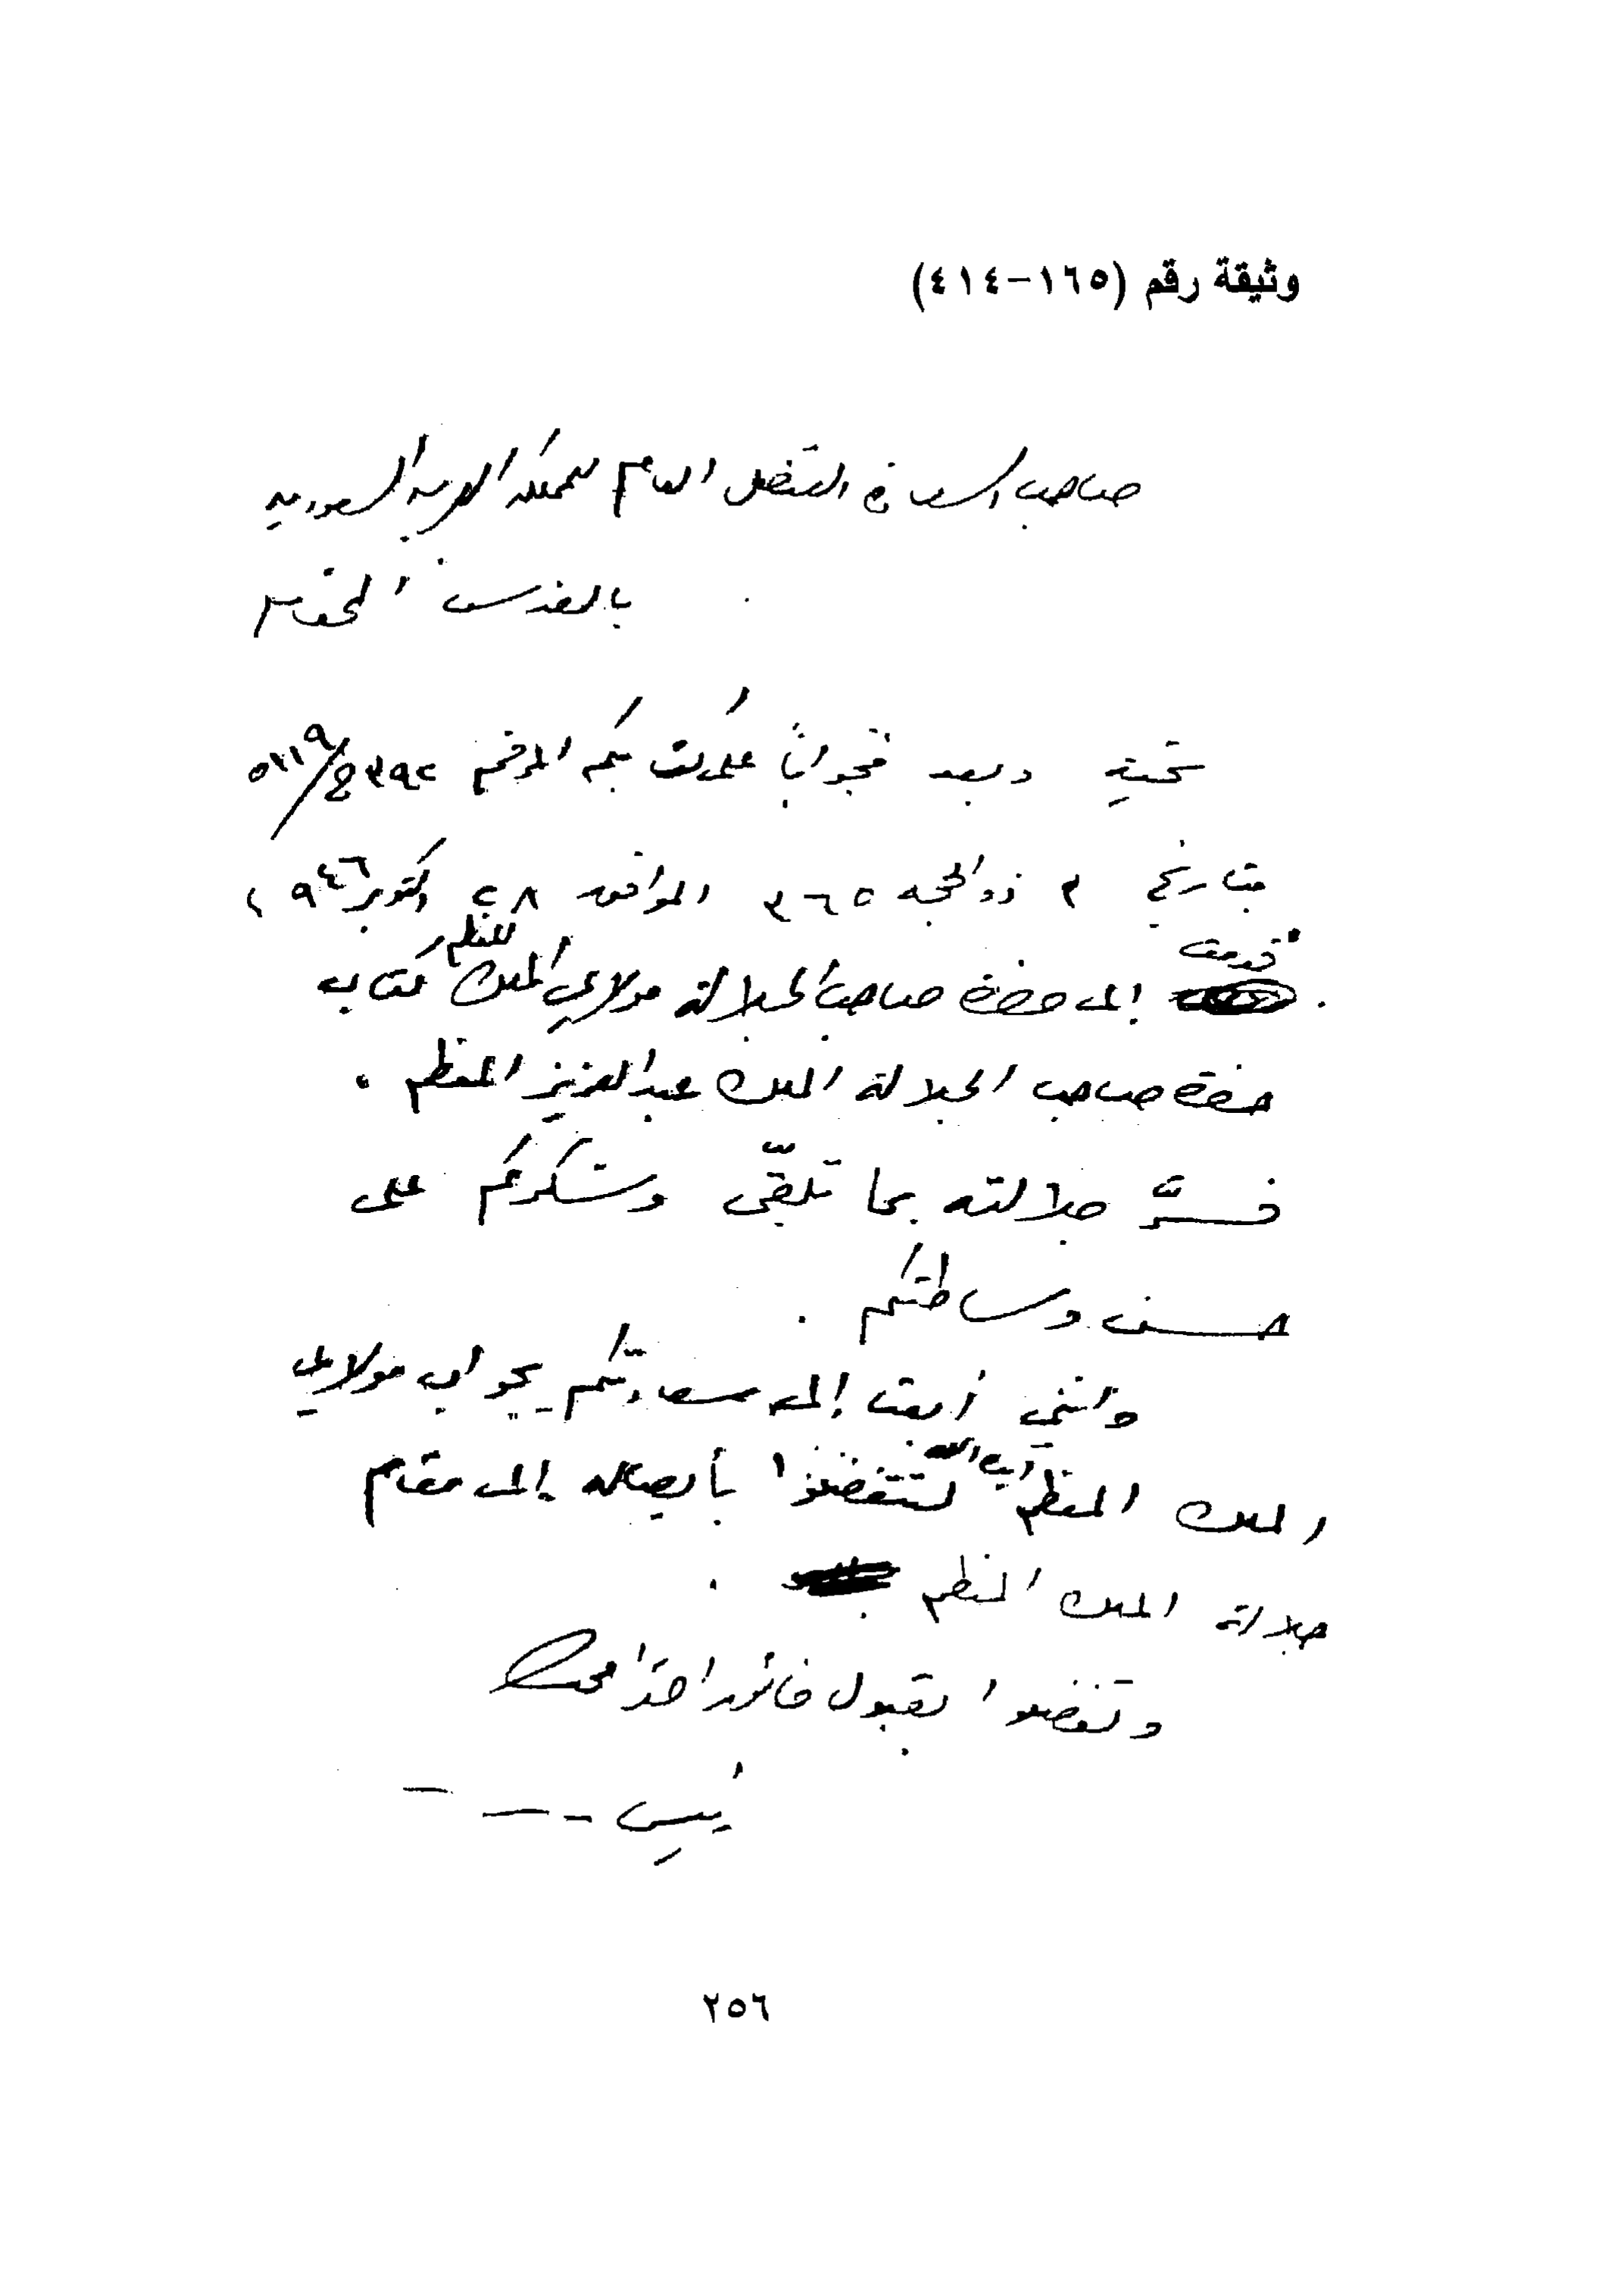 وثيقة رقم (١٦٥-٤١٤)
صاحب السعادة القنصل العام للمملكة العربية السعودية
بالقدس المحترم
تحية وبعد فجواباً على كتابكم المرقم
بتاريخ ٣ ذو الحجه ٣٦٥ الموافق ٢٨ اكتوبر ٩٤٦،
قدمت إلى حضرة صاحب الجلالة مولاي الملك المعظم كتاب
حضرة صاحب الجلالة الملك عبد العزيز المعظم .
فسُرَّ جلالته بما تلقّى وشكركم على
حسن وساطتكم .
وانني أبعث إلى سعادتكم بجواب مولاي
الملك المعظم أيده الله لتتفضلوا بأيصاله إلى مقام
جلالة الملك المعظم .
وتفضلوا بقبول فائق احترامي
رئيس
٢٥٦